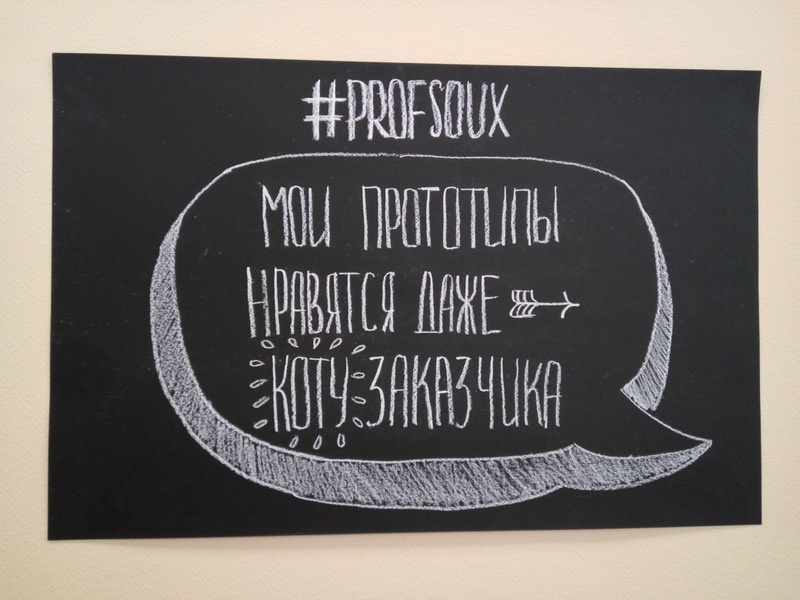 #PROFSOUX
МОИ ПРОТОТИПЫ
НРАВЯТСЯ ДАЖЕ
КОТУ ЗАКАЗЧИКА